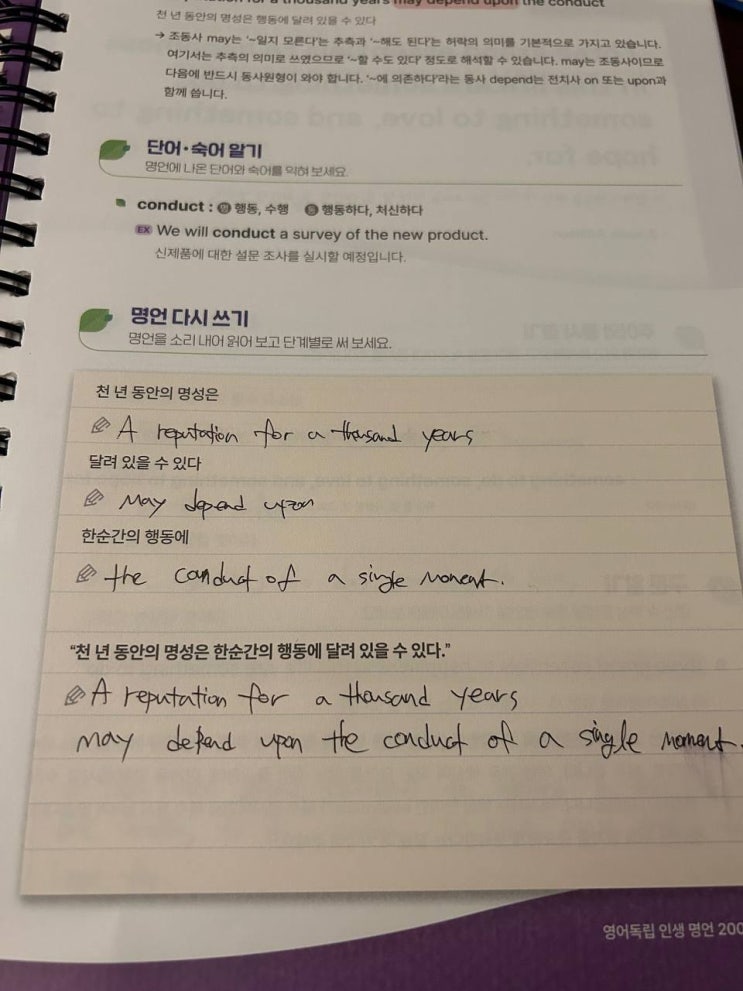 for a thousand years may depend upon the conduct
천 년 동안의 명성은 행동에 달려 있을 수 있다
→ 조동사 may는 ‘~일지 모른다’는 추측과 ‘~해도 된다’는 허락의 의미를 기본적으로 가지고 있습니다.
여기서는 추측의 의미로 쓰였으므로 ‘~할 수도 있다’ 정도로 해석할 수 있습니다. may는 조동사이므로
다음에 반드시 동사원형이 와야 합니다. ‘~에 의존하다’라는 동사 depend는 전치사 on 또는 upon과
함께 씁니다.
단어·숙어 알기
명언에 나온 단어와 숙어를 익혀 보세요.
conduct : 명 행동, 수행 동 행동하다, 처신하다
EX We will conduct a survey of the new product.
신제품에 대한 설문 조사를 실시할 예정입니다.
명언 다시 쓰기
명언을 소리 내어 읽어 보고 단계별로 써 보세요.
천 년 동안의 명성은
A reputation for a thousand years
달려 있을 수 있다
May depend upon
한순간의 행동에
the conduct of a single moment.
“천 년 동안의 명성은 한순간의 행동에 달려 있을 수 있다.”
A reputation for a thousand years
may depend upon the conduct of a single moment.
영어독립 인생 명언 200